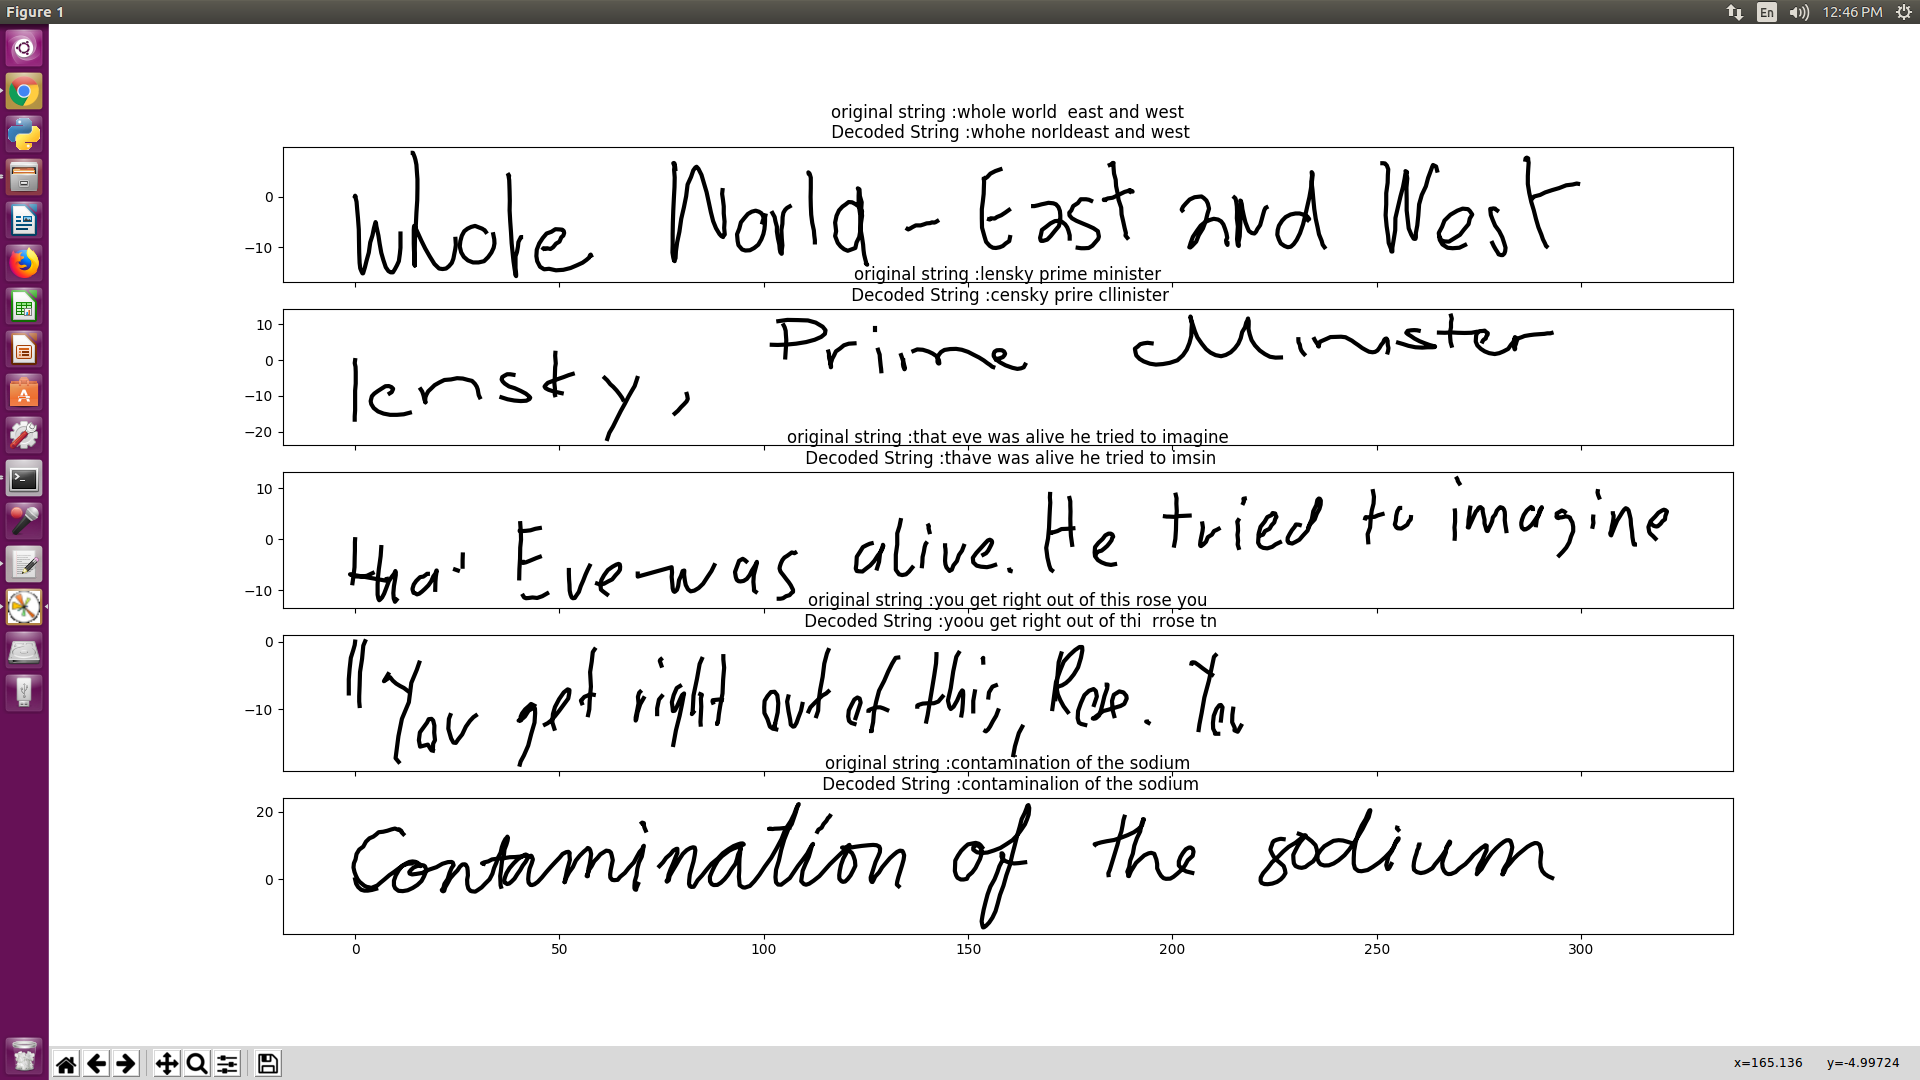 Figure 1
En
12:46 PM
original string :whole world  east and west
Decoded String :whohe norldeast and west
0
−10
Whole World - East and West
original string :lensky prime minister
Decoded String :censky prire cllinister
10
0
−10
−20
lensky, Prime Minister
original string :that eve was alive he tried to imagine
Decoded String :thave was alive he tried to imsin
10
0
−10
that Eve was alive. He tried to imagine
original string :you get right out of this rose you
Decoded String :yoou get right out of thi  rrose tn
0
−10
"You get right out of this, Rose. You
original string :contamination of the sodium
Decoded String :contaminalion of the sodium
20
0
Contamination of the sodium
0 50 100 150 200 250 300
x=165.136 y=-4.99724